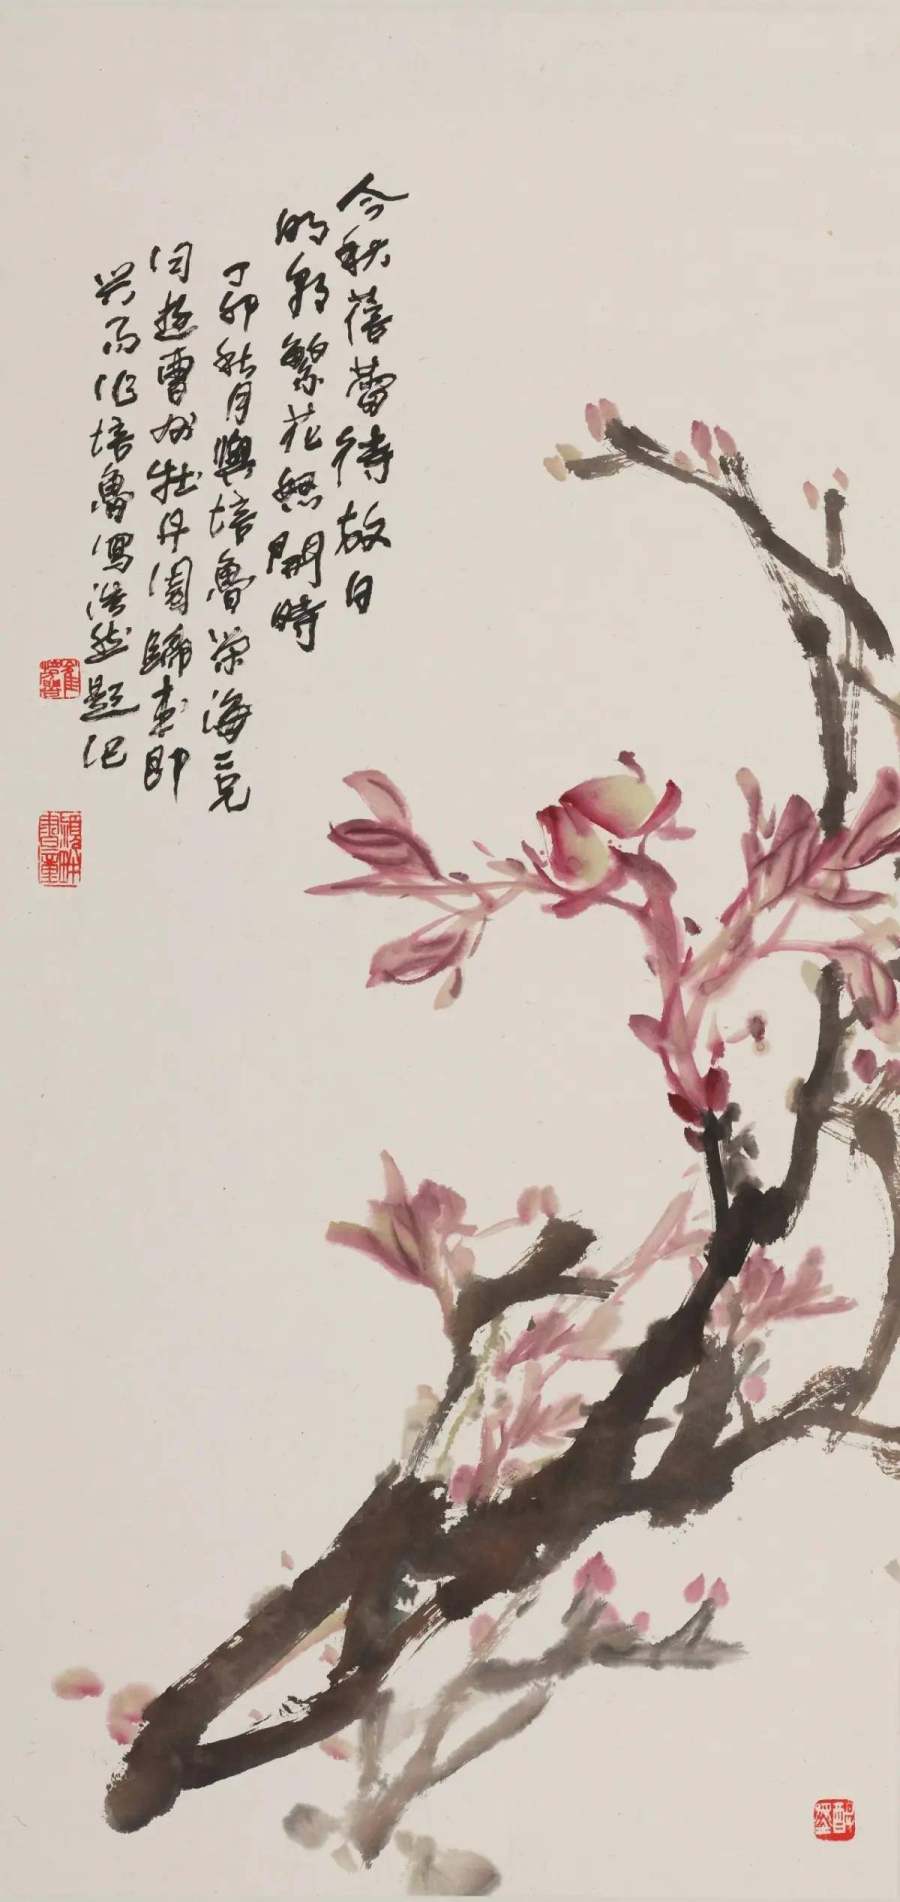 今秋蓓蕾待放日
明朝繁花怒開時
丁卯秋月與培魯榮海二兄
同遊曹州牡丹園歸來即
興而作培魯寫浩然題記